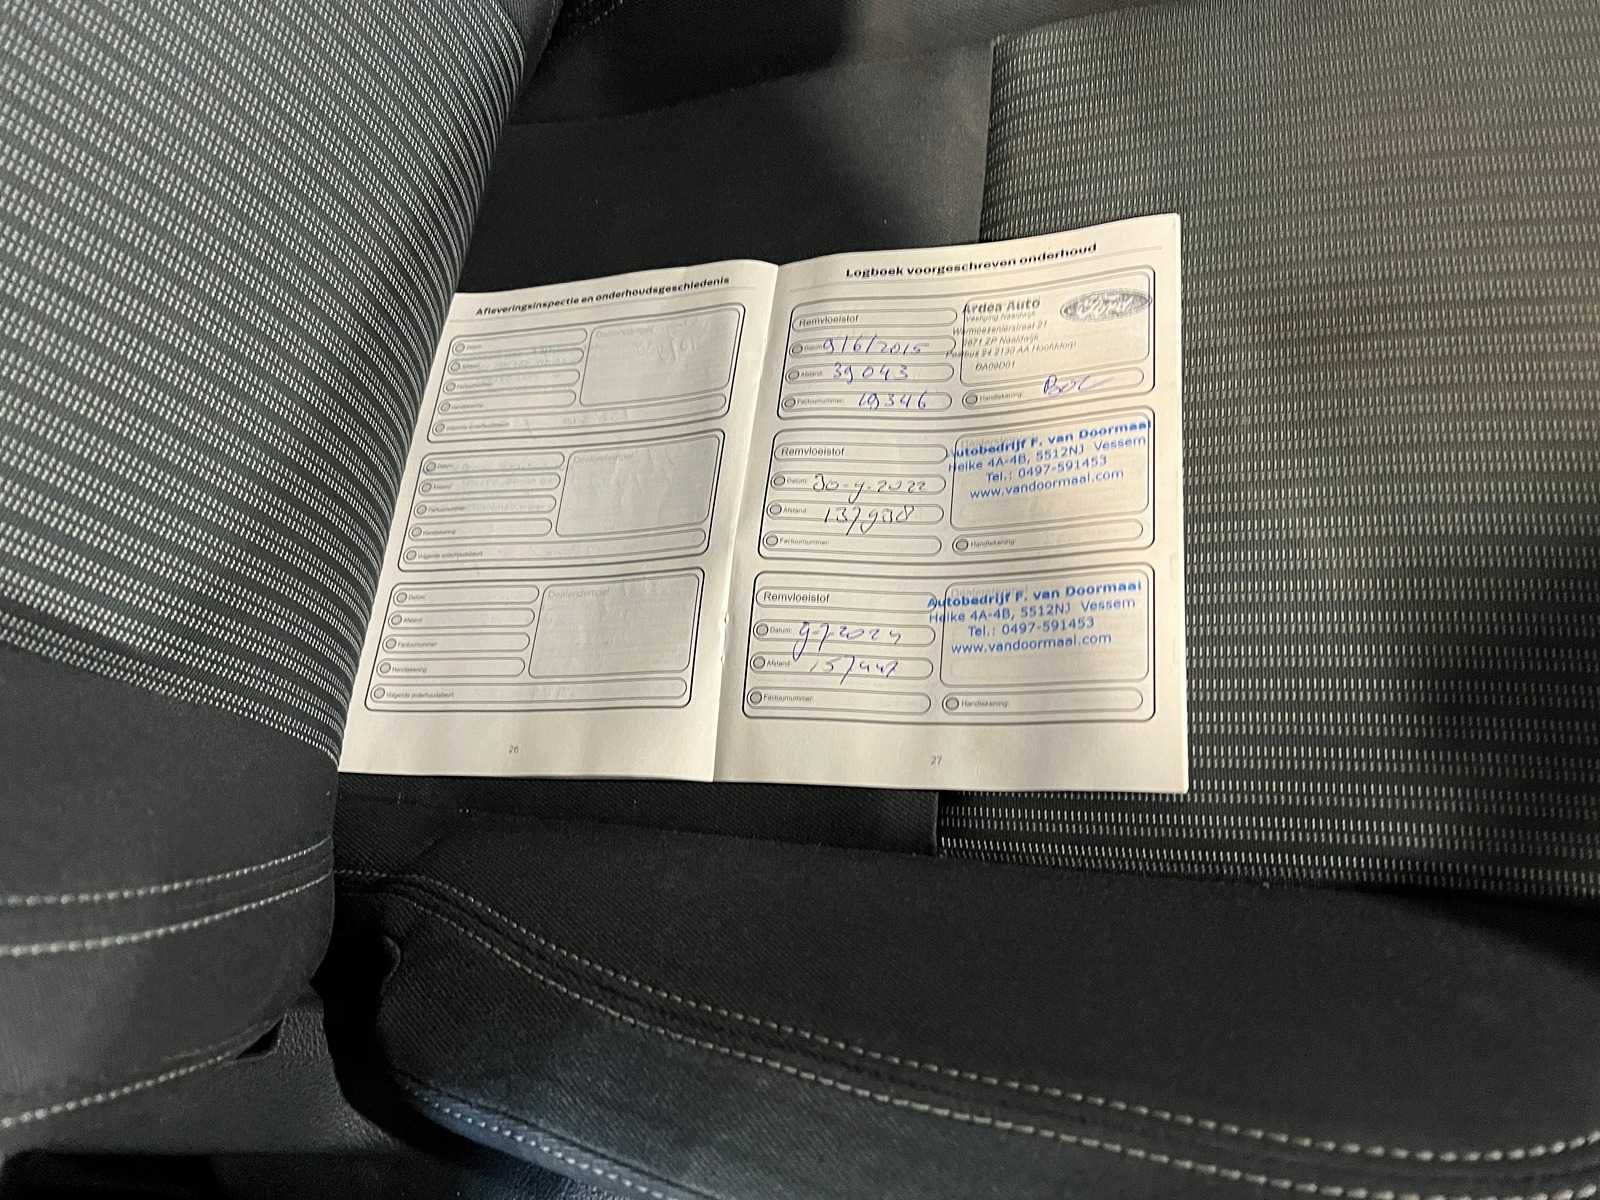 Afleveringsinspectie en onderhoudsgeschiedenis
Datum:
Afstand:
Factuurnummer:
Handtekening:
Volgende onderhoudsbeurt:
Dealerstempel
Datum:
Afstand:
Factuurnummer:
Handtekening:
Volgende onderhoudsbeurt:
Dealerstempel
Datum:
Afstand:
Factuurnummer:
Handtekening:
Volgende onderhoudsbeurt:
Dealerstempel
26
Logboek voorgeschreven onderhoud
Remvloeistof
Datum: 9/6/2015
Afstand: 39043
Factuurnummer: 19346
Ardea Auto
Vestiging Naaldwijk
Warmoezenierstraat 21
2671 ZP Naaldwijk
Postbus 24 2130 AA Hoofddorp
Ford
Handtekening:
Remvloeistof
Datum: 30-9-2022
Afstand: 137938
Factuurnummer:
Autobedrijf F. van Doormaal
Heike 4A-4B, 5512NJ Vessem
Tel.: 0497-591453
www.vandoormaal.com
Handtekening:
Remvloeistof
Datum: 9-7-2024
Afstand:
Factuurnummer:
Autobedrijf F. van Doormaal
Heike 4A-4B, 5512NJ Vessem
Tel.: 0497-591453
www.vandoormaal.com
Handtekening:
27